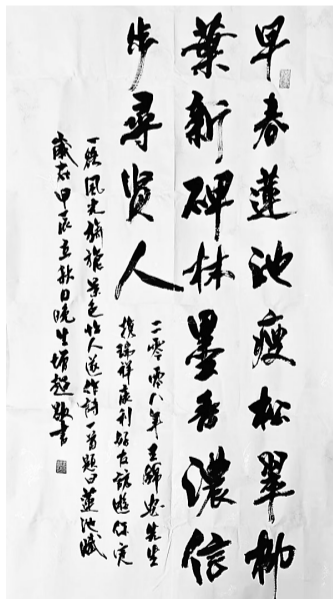 早春蓮池瘦松翠柳
葉新碑林墨香濃信
步尋贤人
二零零八年先生
携瑞祥康利好友訪遊保定
一路風光旖旎景色怡人遂作詩一首題曰蓮池賦
歲在甲辰立秋日曉生增超題書